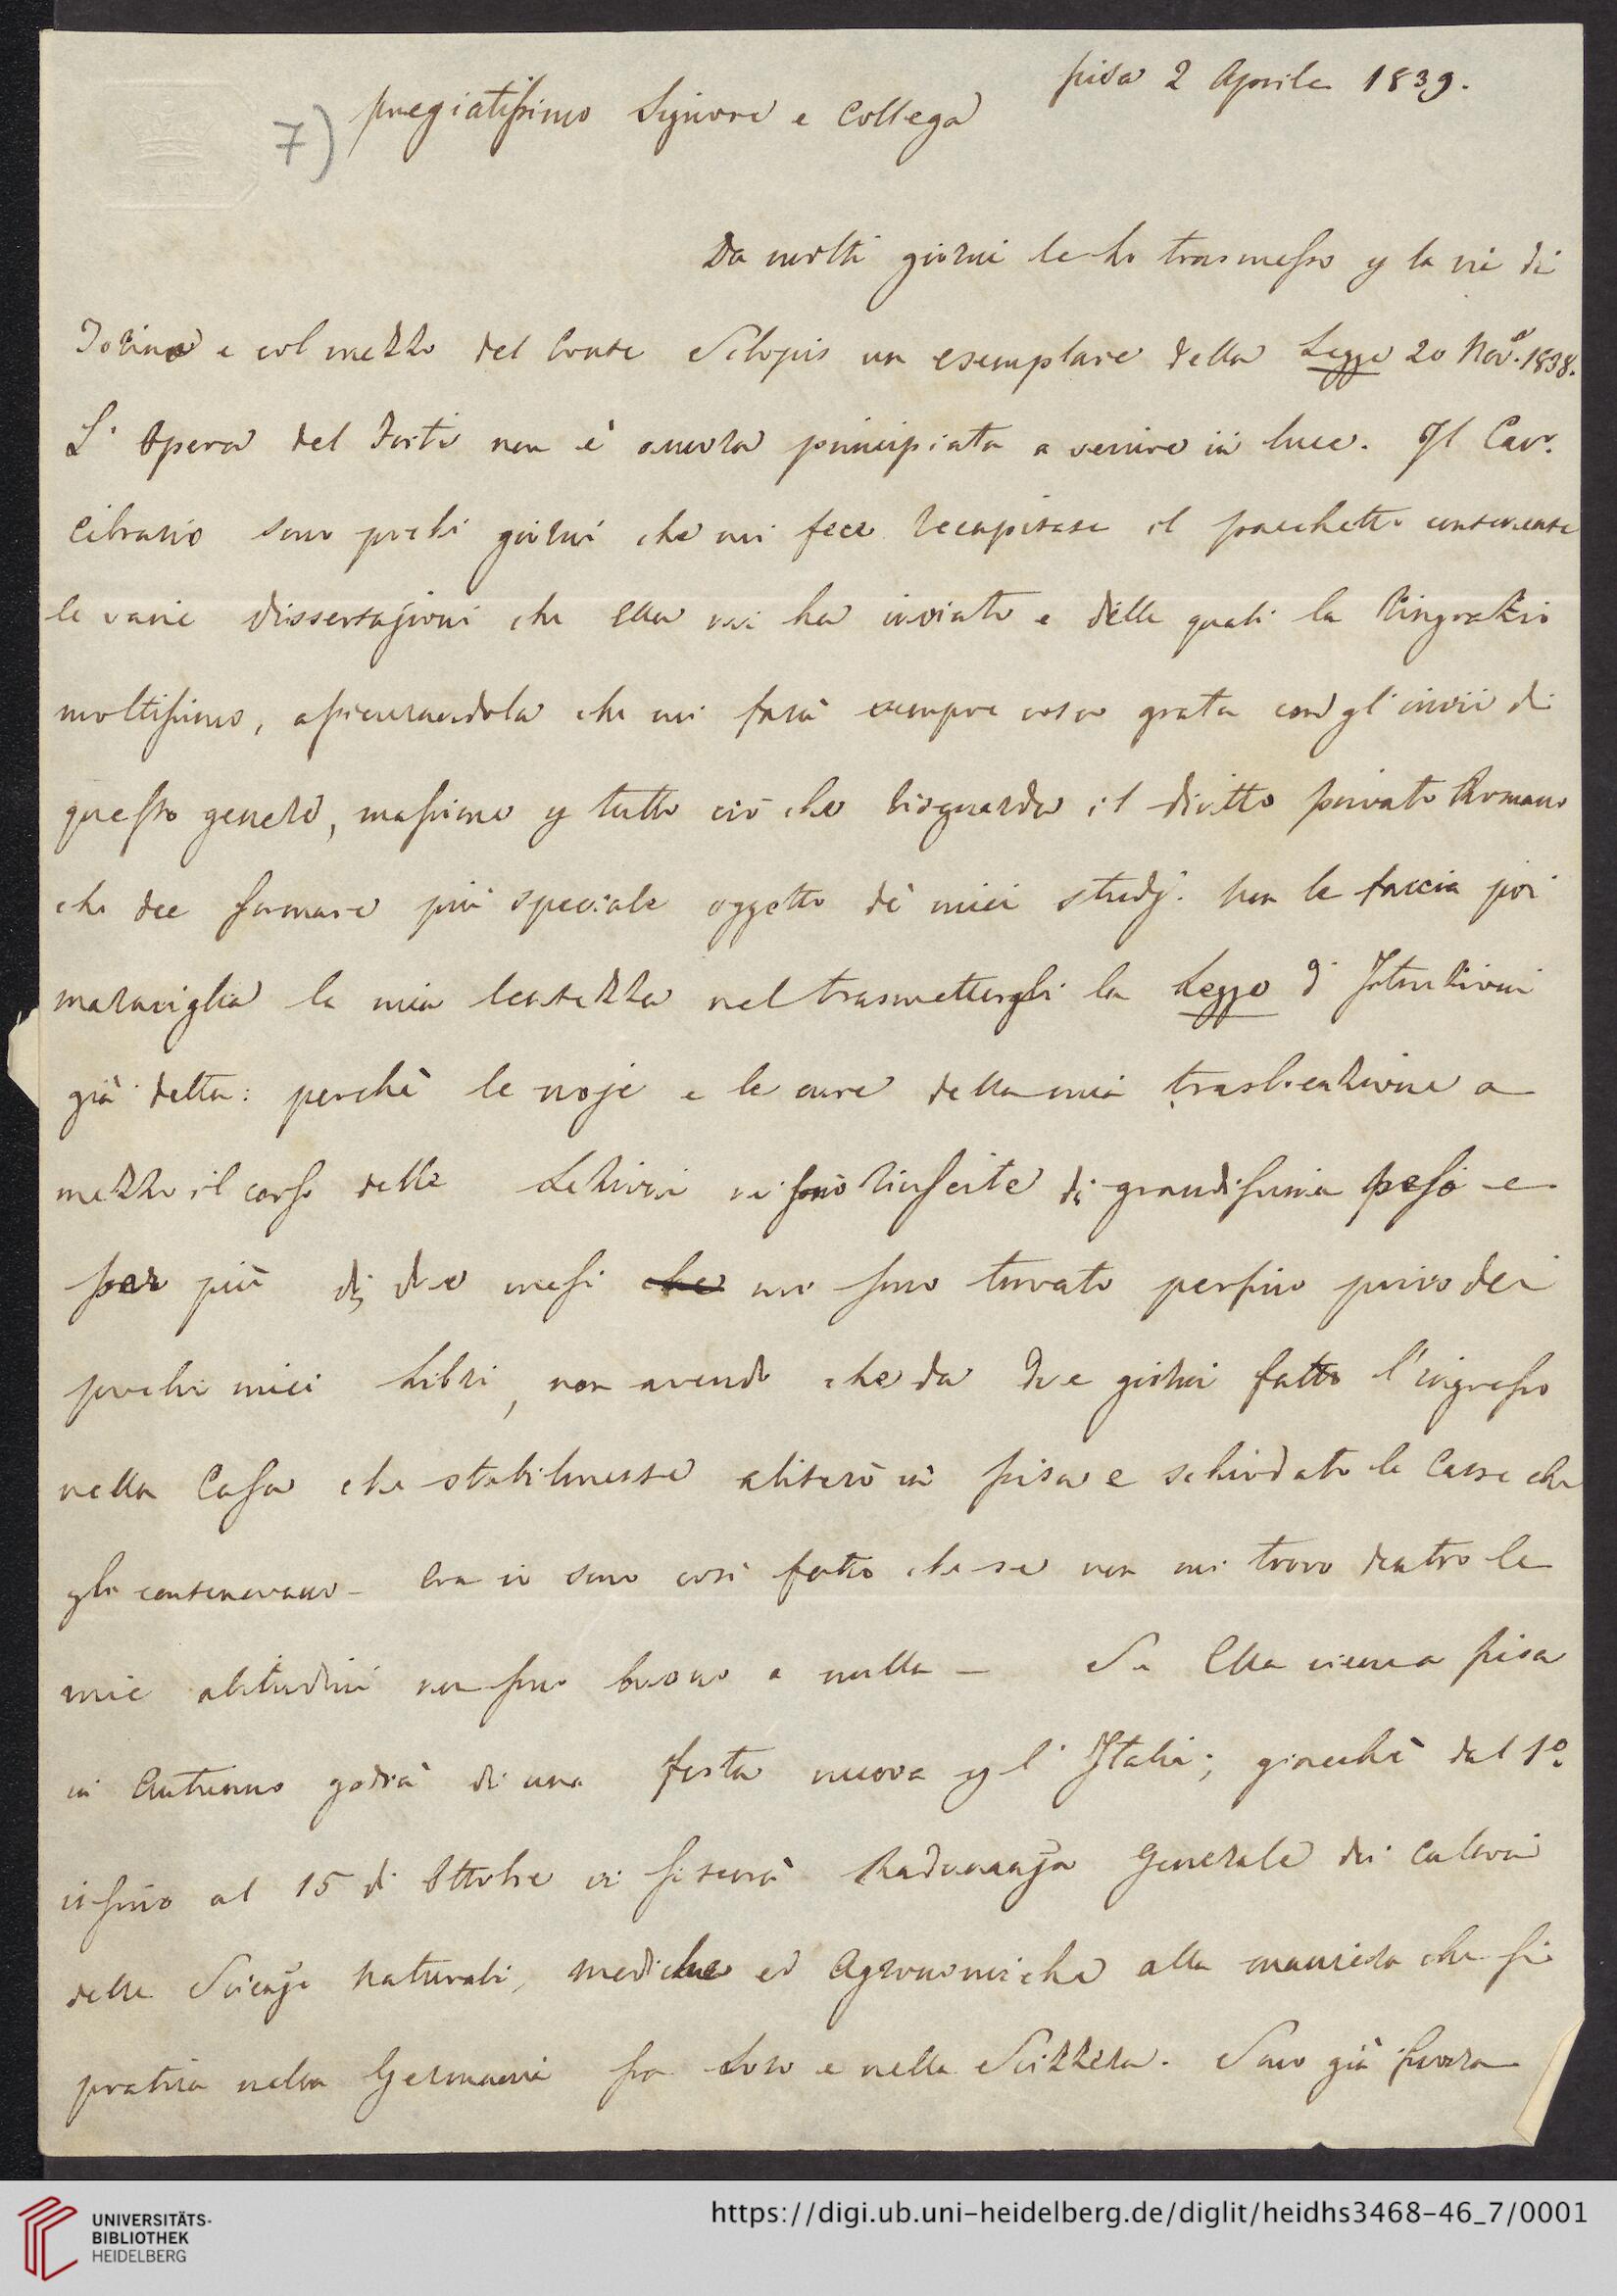 Pisa 2 Aprile 1839.
7) Pregiatissimo Signore e Collega
Da molti giorni le ho trasmesso p la via di
Torino e col mezzo del Conte Sclopis un esemplare della Legge 20 Nove. 1838.
L'Opera del Forti non è ancora principiata a venire in luce. Il Cavr.
Cibrario sono pochi giorni che mi fece recapitare il pacchetto contenente
le varie dissertazioni che Ella mi ha inviato e delle quali la ringrazio
moltissimo, assicurandola che mi farà sempre cosa grata con gl'invii di
questo genere, massime p tutto ciò che risguarda il diritto privato Romano
che dee formare più speciale oggetto de' miei studj. Non le faccia poi
maraviglia la mia lentezza nel trasmettergli la Legge d'Istruzioni
già detta: perchè le noje e le cure della mia traslocazione a
mezzo il corso delle Lezioni mi sono riuscite di grandissimo peso e
per più di due mesi che mi sono trovato persino privo dei
pochi miei Libri, non avendo che da due giorni fatto l'ingresso
nella Casa che stabilmente abiterò in Pisa e schiodato le Casse che
gli contenevano – Ora io sono così fatto che se non mi trovo dentro le
mie abitudini non sono buono a nulla – Se Ella viene a Pisa
in Autunno godrà di una festa nuova p l'Italia; giacchè dal 1º.
insino al 15 di Ottobre vi si terrà Radunanza Generale dei Cultori
delle Scienze Naturali, mediche ed Agronomiche alla maniera che si
pratica nella Germania fra Loro e nella Svizzera. Sono già finora
UNIVERSITÄTS-
BIBLIOTHEK
HEIDELBERG
https://digi.ub.uni-heidelberg.de/diglit/heidhs3468-46_7/0001